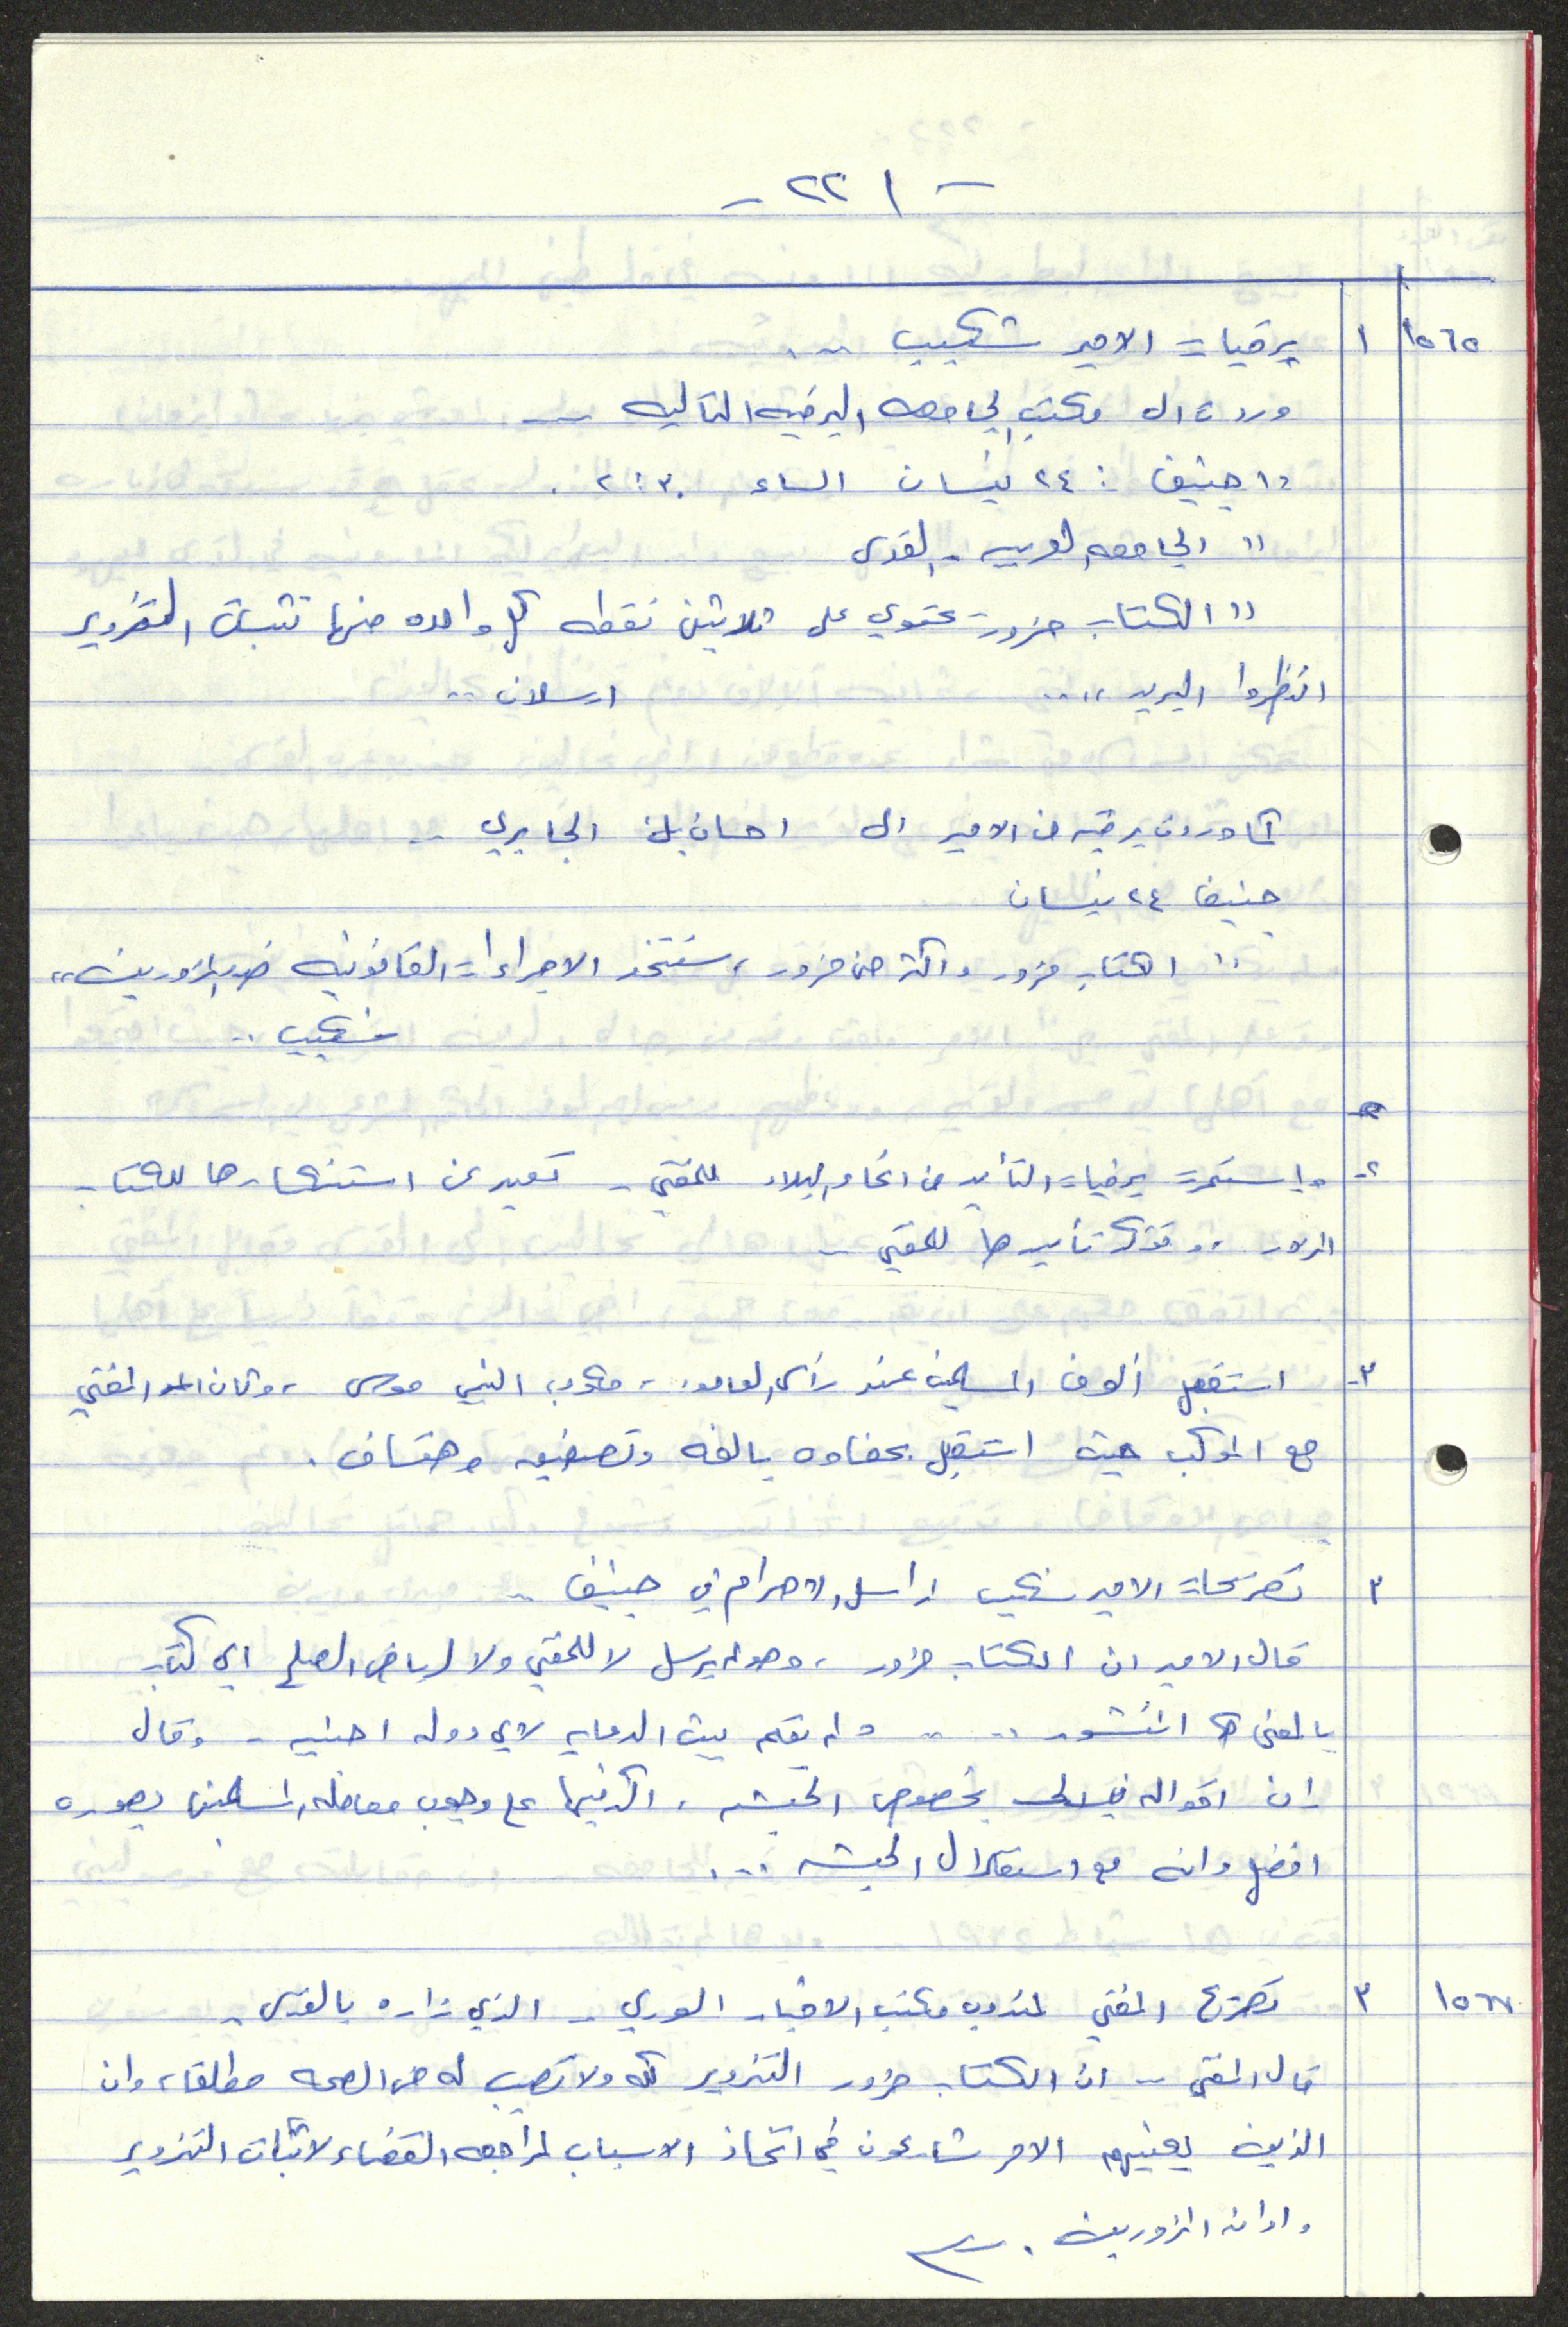 - ٢٢١ -
١٥٦٥ ١ برقيات الامير شكيب ...
وردت الى مكتب الجامعه البرقيه التاليه ..
" جنيف : ٢٤ نيسان الساعه ٢:٣٠ .
" الجامعه العربيه - القدس
" الكتاب مزور يحتوي على ثلاثين نقطه كل واحده منها تثبت التزوير
انتظروا البريد " .. ارسلان ..
كما وردت برقيه من الامير الى احسان بك الجابري ..
جنيف ٢٤ نيسان
" الكتاب مزور واكثر من مزور ، سنتخذ الاجراءات القانونيه ضد المزورين "
شكيب ..
٢- واستمرت برقيات التأييد من انحاء البلاد للمفتي - تعبير عن استنكارها للكتاب
المزور ، وتؤكد تأييدها للمفتي ..
٣- استقبل الوف المسلمين عند رأس العامود ، موكب النبي موسى ، وكان المفتي
مع الموكب حيث استقبل بحفاوه بالغه وتصفيق وهتاف .
٣ تصريحات الامير شكيب لمراسل الاهرام في جنيف ..
قال الامير ان الكتاب مزور ، وهو لم يرسل لا للمفتي ولا لرياض الصلح اي كتاب
بالمعنى المنشور .. .. ولم يقم ببث الدعايه لاي دوله اجنبيه - وقال
ان اقواله بخصوص الحبشه ، اكد فيها على وجوب معامله المسلمين بصوره
افضل وانه مع استقلال الحبشه ...
١٥٦٧ ٣ تصريح المفتي لمندوب مكتب الاخبار السوري - الذي زاره بالقدس -
قال المفتي - ان الكتاب مزور التزوير كله ولا نصيب له من الصحه مطلقا ، وان
الذين يعنيهم الامر شارعون في اتخاذ الاسباب لمراجعه القضاء لاثبات التزوير
وادانه المزورين .